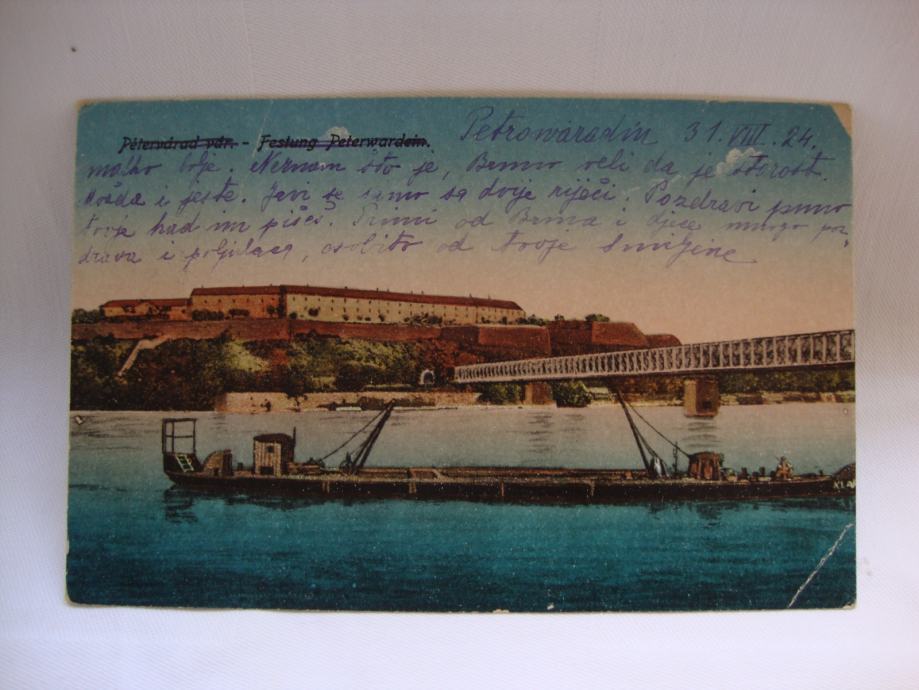 Pétervárad vár. - Festung Peterwardein. Petrowaradin 31. VIII. 24.
malko bolje. Neznam što je, Bruno veli da je starost.
Možda i jeste. Javi se samo sa dvije riječi. Pozdravi puno
tvoje kad im pišeš. Primi od Bruna i djece mnogo poz-
drava i poljubaca, osobito od tvoje Smiljene
KLA